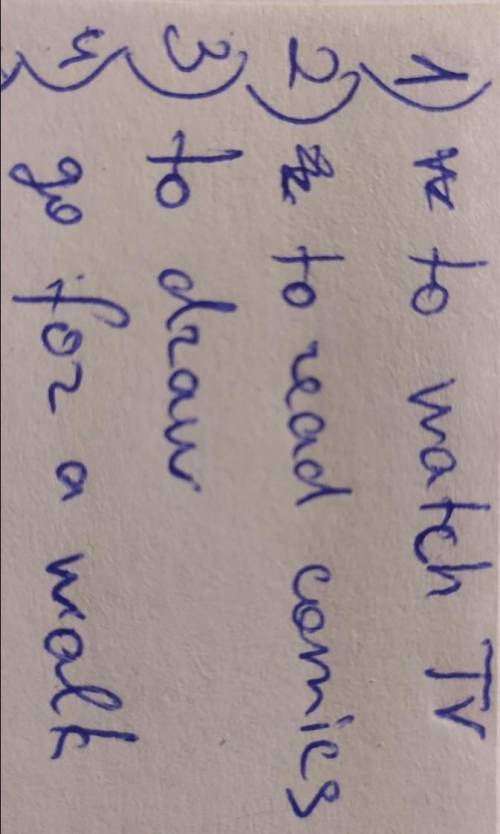 1) to watch TV
2) to read comics
3) to draw
4) go for a walk